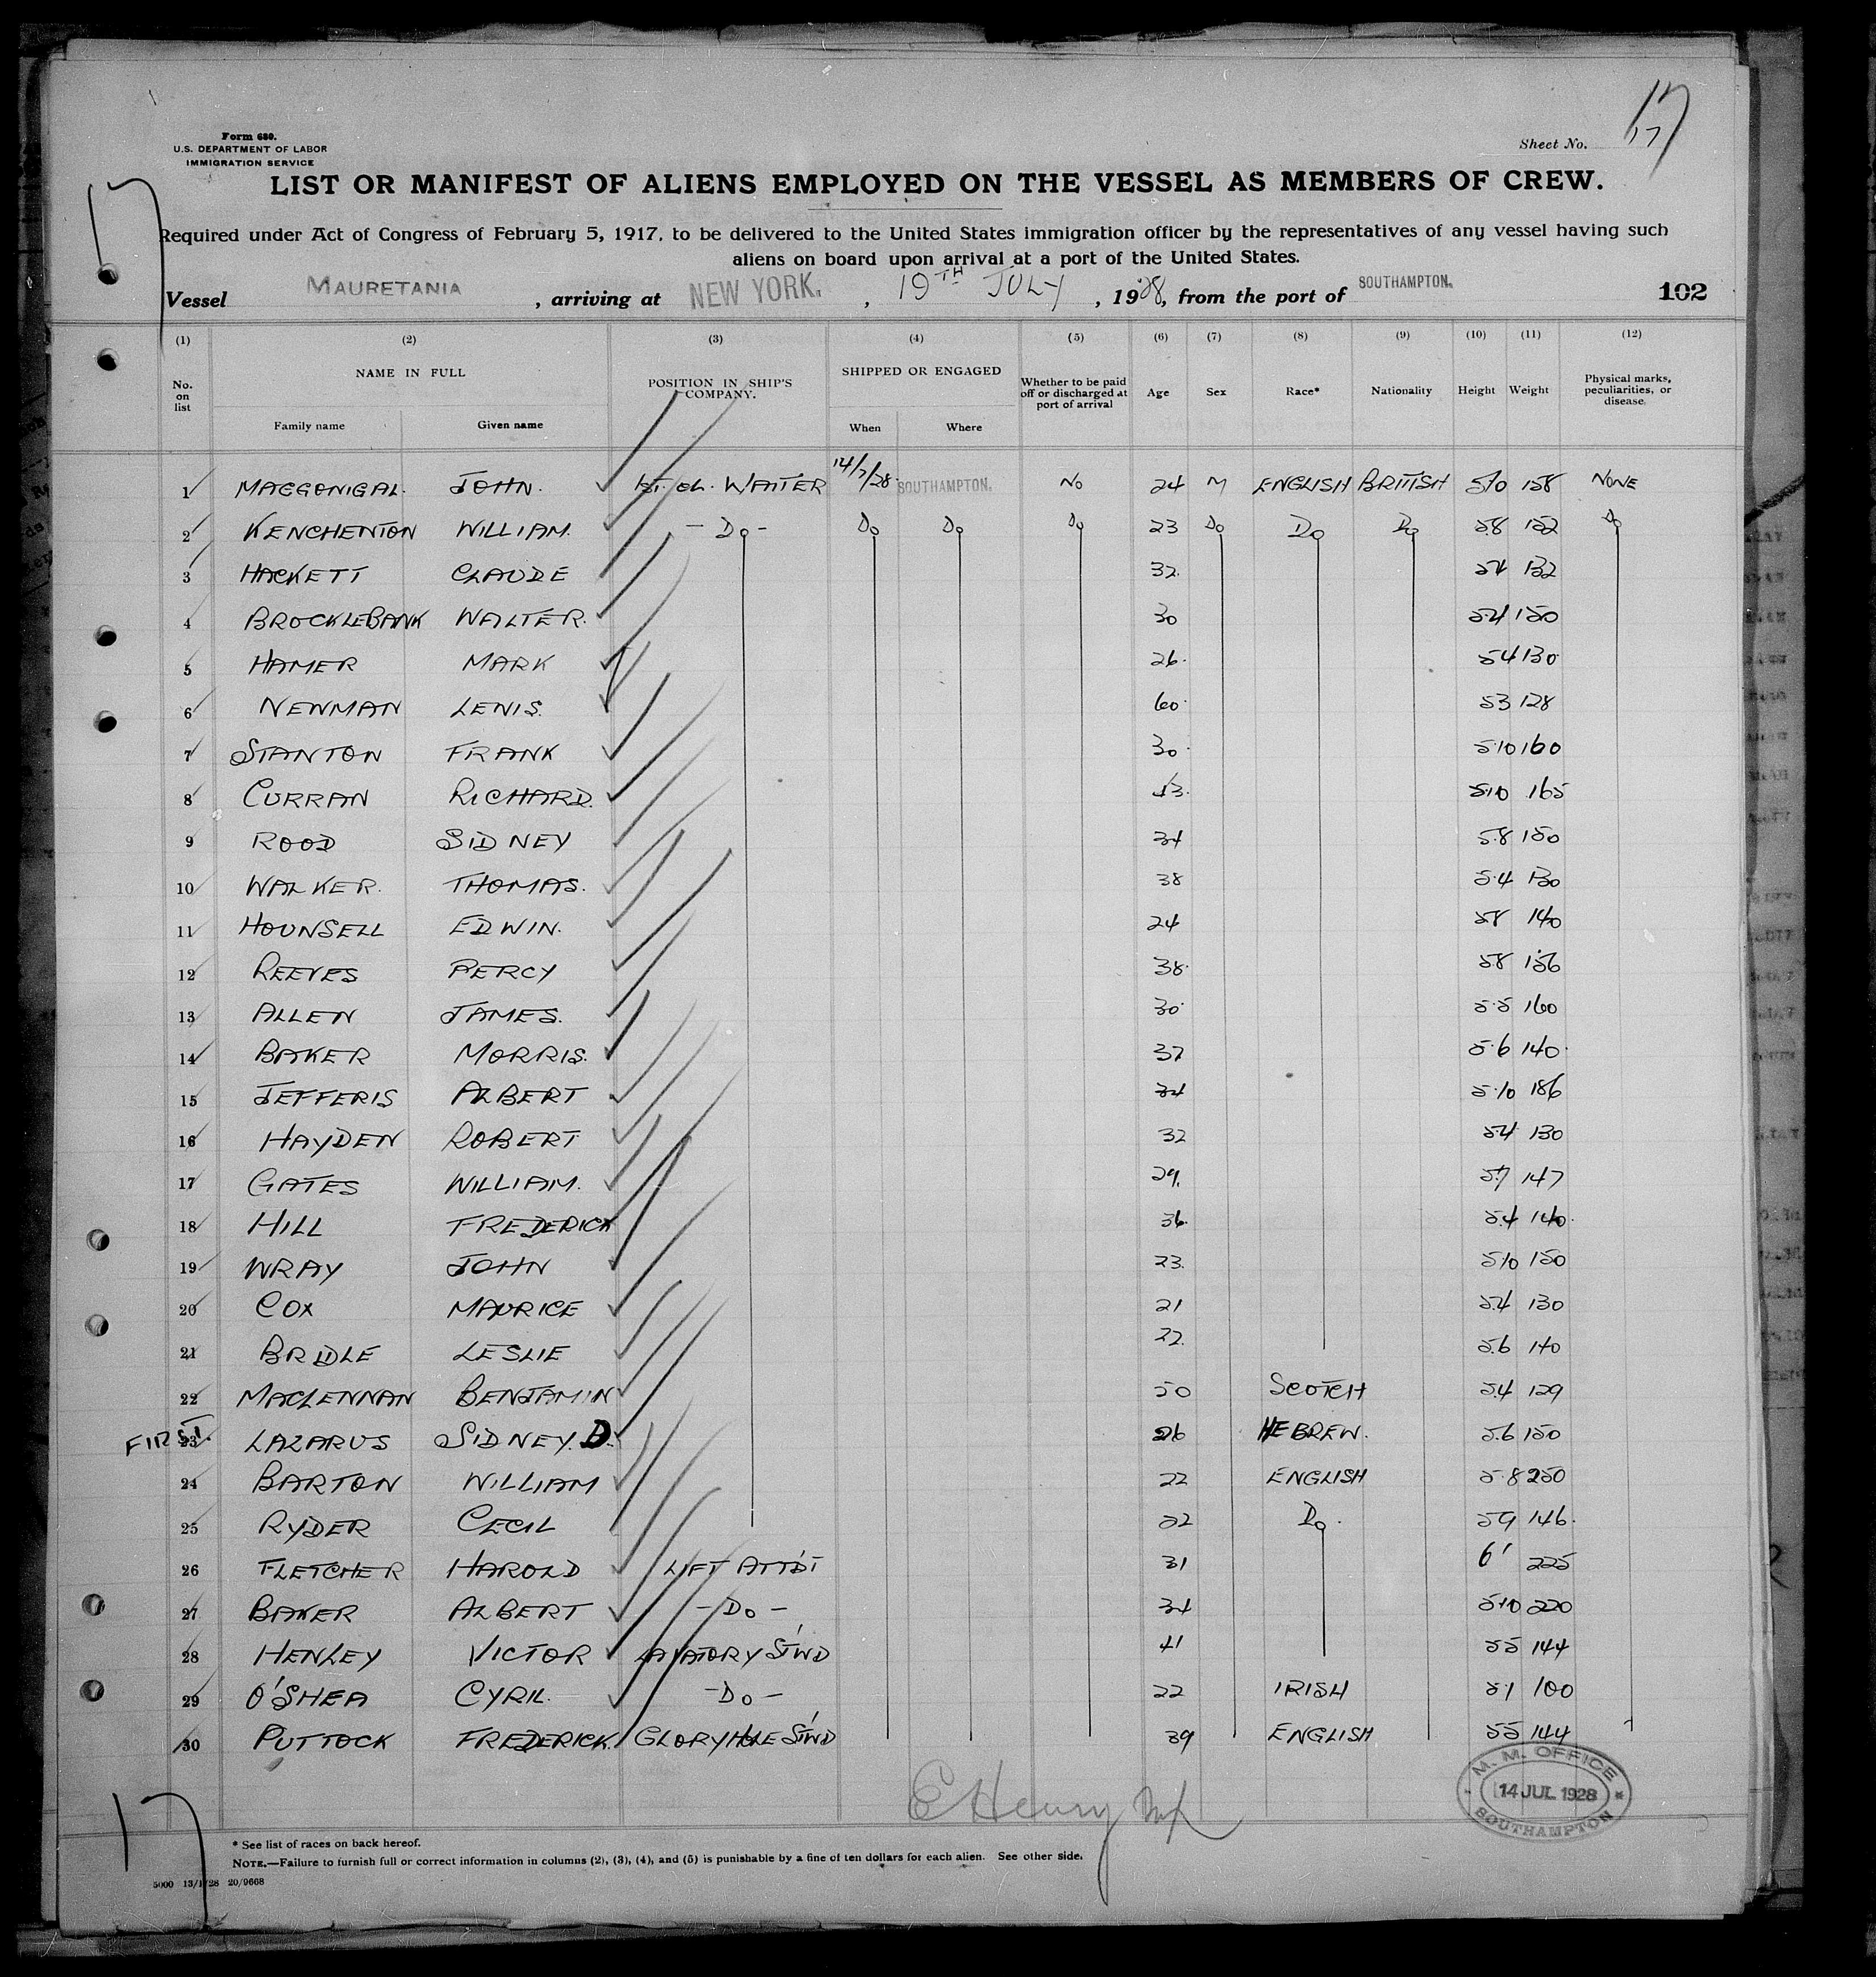 17
Form 680.
U.S. DEPARTMENT OF LABOR
IMMIGRATION SERVICE
Sheet No. 17
LIST OR MANIFEST OF ALIENS EMPLOYED ON THE VESSEL AS MEMBERS OF CREW.
Required under Act of Congress of February 5, 1917, to be delivered to the United States immigration officer by the representatives of any vessel having such
aliens on board upon arrival at a port of the United States.
Vessel MAURETANIA, arriving at NEW YORK, 19TH JULY, 1928, from the port of SOUTHAMPTON. 102
(1) (2) (3) (4) (5) (6) (7) (8) (9) (10) (11) (12)
No. on list NAME IN FULL POSITION IN SHIP'S COMPANY. SHIPPED OR ENGAGED Whether to be paid off or discharged at port of arrival Age Sex Race* Nationality Height Weight Physical marks, peculiarities, or disease.
Family name Given name When Where
1 MACGONIGAL. JOHN. WAITER 14/7/28 SOUTHAMPTON. No 24 M ENGLISH BRITISH 5/10 158 NONE
2 KENCHENTON WILLIAM. - Do - Do Do Do 23 Do Do Do 5.8 152 Do
3 HACKETT CLAUDE 32. 5.4 132
4 BROCKLEBANK WALTER. 30 5.4 150
5 HAMER MARK 26. 5.4 130
6 NEWMAN LEWIS. 60. 5.3 128
7 STANTON FRANK 30. 5.10 160
8 CURRAN RICHARD. 43. 5.10 165
9 ROOD SIDNEY 34 5.8 150
10 WALKER. THOMAS. 38 5.4 130
11 HOUNSELL EDWIN. 24 5.8 140
12 REEVES PERCY 38. 5.8 156
13 ALLEN JAMES. 30. 5.5 160
14 BAKER MORRIS. 37 5.6 140.
15 JEFFERIS ALBERT 34 5.10 186
16 HAYDEN ROBERT 32 5.4 130
17 GATES WILLIAM. 29. 5.7 147
18 HILL FREDERICK 36. 5.4 140.
19 WRAY JOHN 23. 5/10 150
20 COX MAURICE 21 5.4 130
21 BRIDLE LESLIE 22. 5.6 140
22 MACLENNAN BENJAMIN 50 SCOTCH 5.4 129
FIRST. 23 LAZARUS SIDNEY. D. 26 HEBREW. 5.6 150
24 BARTON WILLIAM 22 ENGLISH 5.8 250
25 RYDER CECIL 22 Do. 5.9 146.
26 FLETCHER HAROLD LIFT ATT'DT 31 6' 225
27 BAKER ALBERT - Do - 34 5.10 220
28 HENLEY VICTOR LAVATORY ST'WD 41 5.5 144
29 O'SHEA CYRIL. - Do - 22 IRISH 5.1 100
30 PUTTOCK FREDERICK. GLORYHOLE ST'WD 39 ENGLISH 5.5 144
E Henry
M. M. OFFICE
14 JUL 1928
SOUTHAMPTON
17
* See list of races on back hereof.
NOTE.—Failure to furnish full or correct information in columns (2), (3), (4), and (5) is punishable by a fine of ten dollars for each alien. See other side.
5000 13/1/28 20/9668